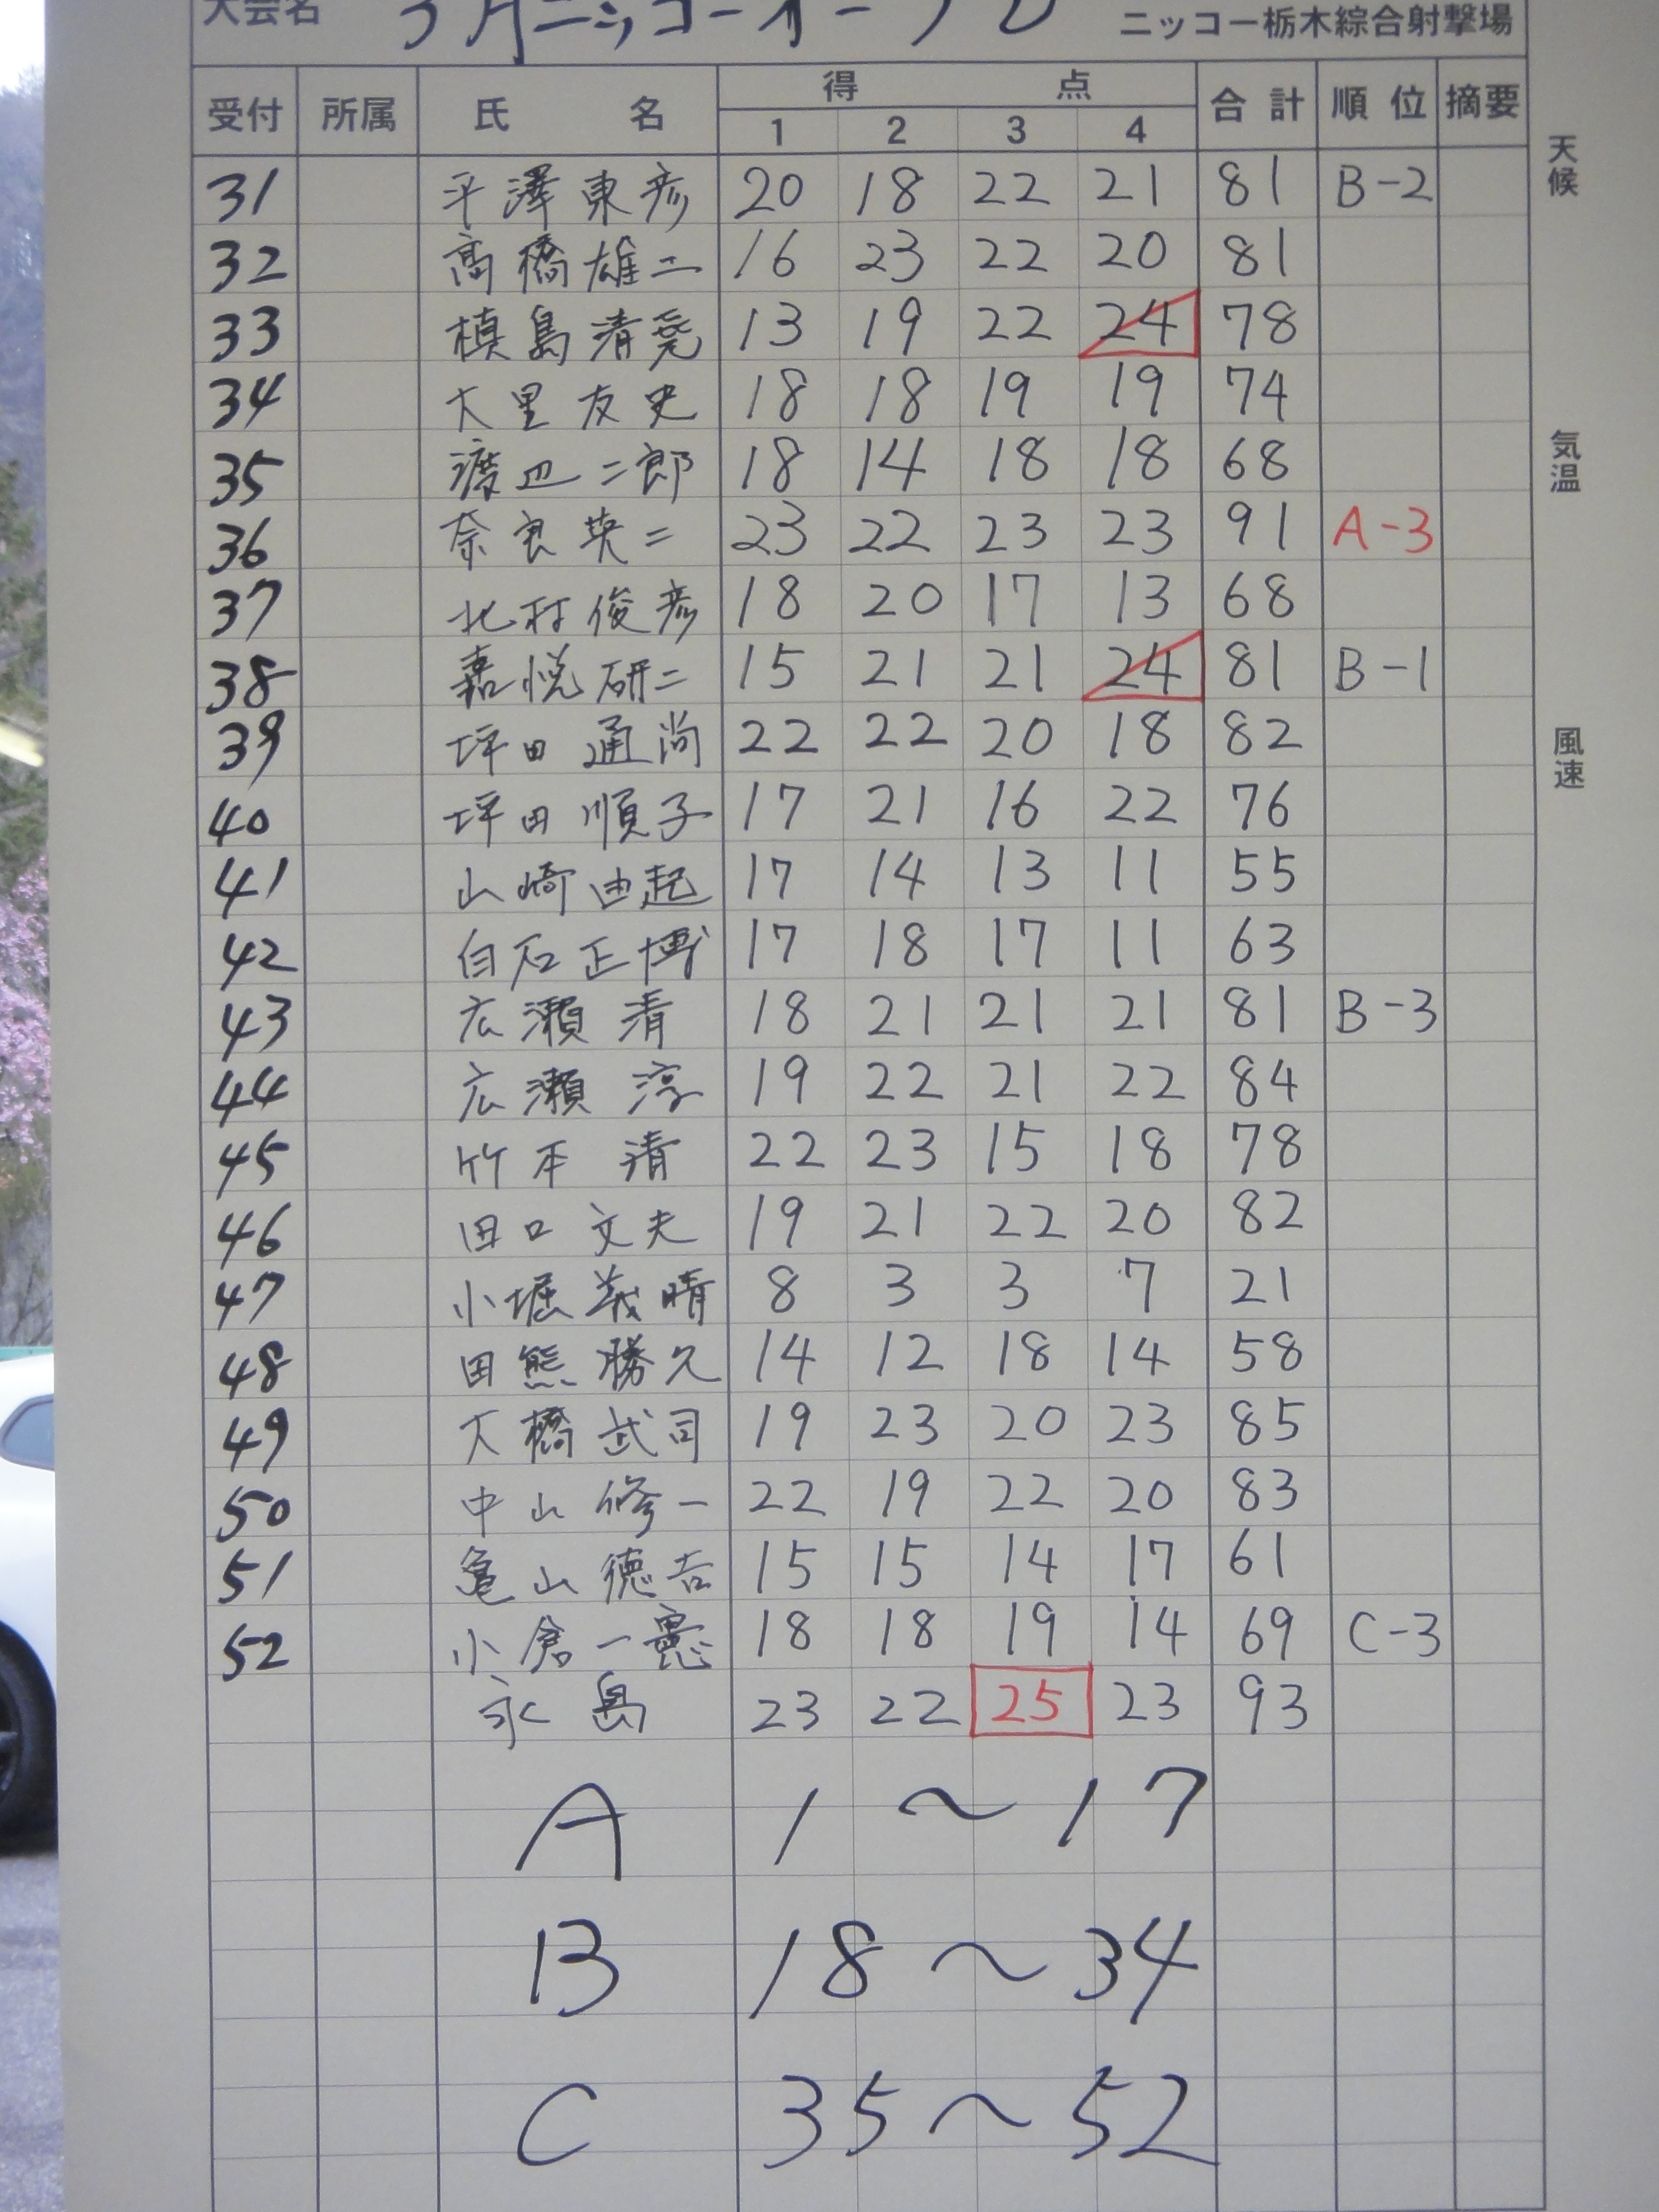 大会名 ニッコーオープ ニッコー栃木綜合射撃場
受付 所属 氏名 得点 合計 順位 摘要
1 2 3 4
31 平澤東彦 20 18 22 21 81 B-2
32 高橋雄二 16 23 22 20 81
33 槙島清尭 13 19 22 24 78
34 大里友史 18 18 19 19 74
35 渡辺二郎 18 14 18 18 68
36 奈良英二 23 22 23 23 91 A-3
37 北村俊彦 18 20 17 13 68
38 嘉悦研二 15 21 21 24 81 B-1
39 坪田通尚 22 22 20 18 82
40 坪田順子 17 21 16 22 76
41 山崎由起 17 14 13 11 55
42 白石正博 17 18 17 11 63
43 広瀬清 18 21 21 21 81 B-3
44 広瀬淳 19 22 21 22 84
45 竹本清 22 23 15 18 78
46 田口文夫 19 21 22 20 82
47 小堀義晴 8 3 3 7 21
48 田熊勝久 14 12 18 14 58
49 大橋武司 19 23 20 23 85
50 中山修一 22 19 22 20 83
51 亀山徳吉 15 15 14 17 61
52 小倉一憲 18 18 19 14 69 C-3
永島 23 22 25 23 93
A 1〜17
B 18〜34
C 35〜52
天候
気温
風速